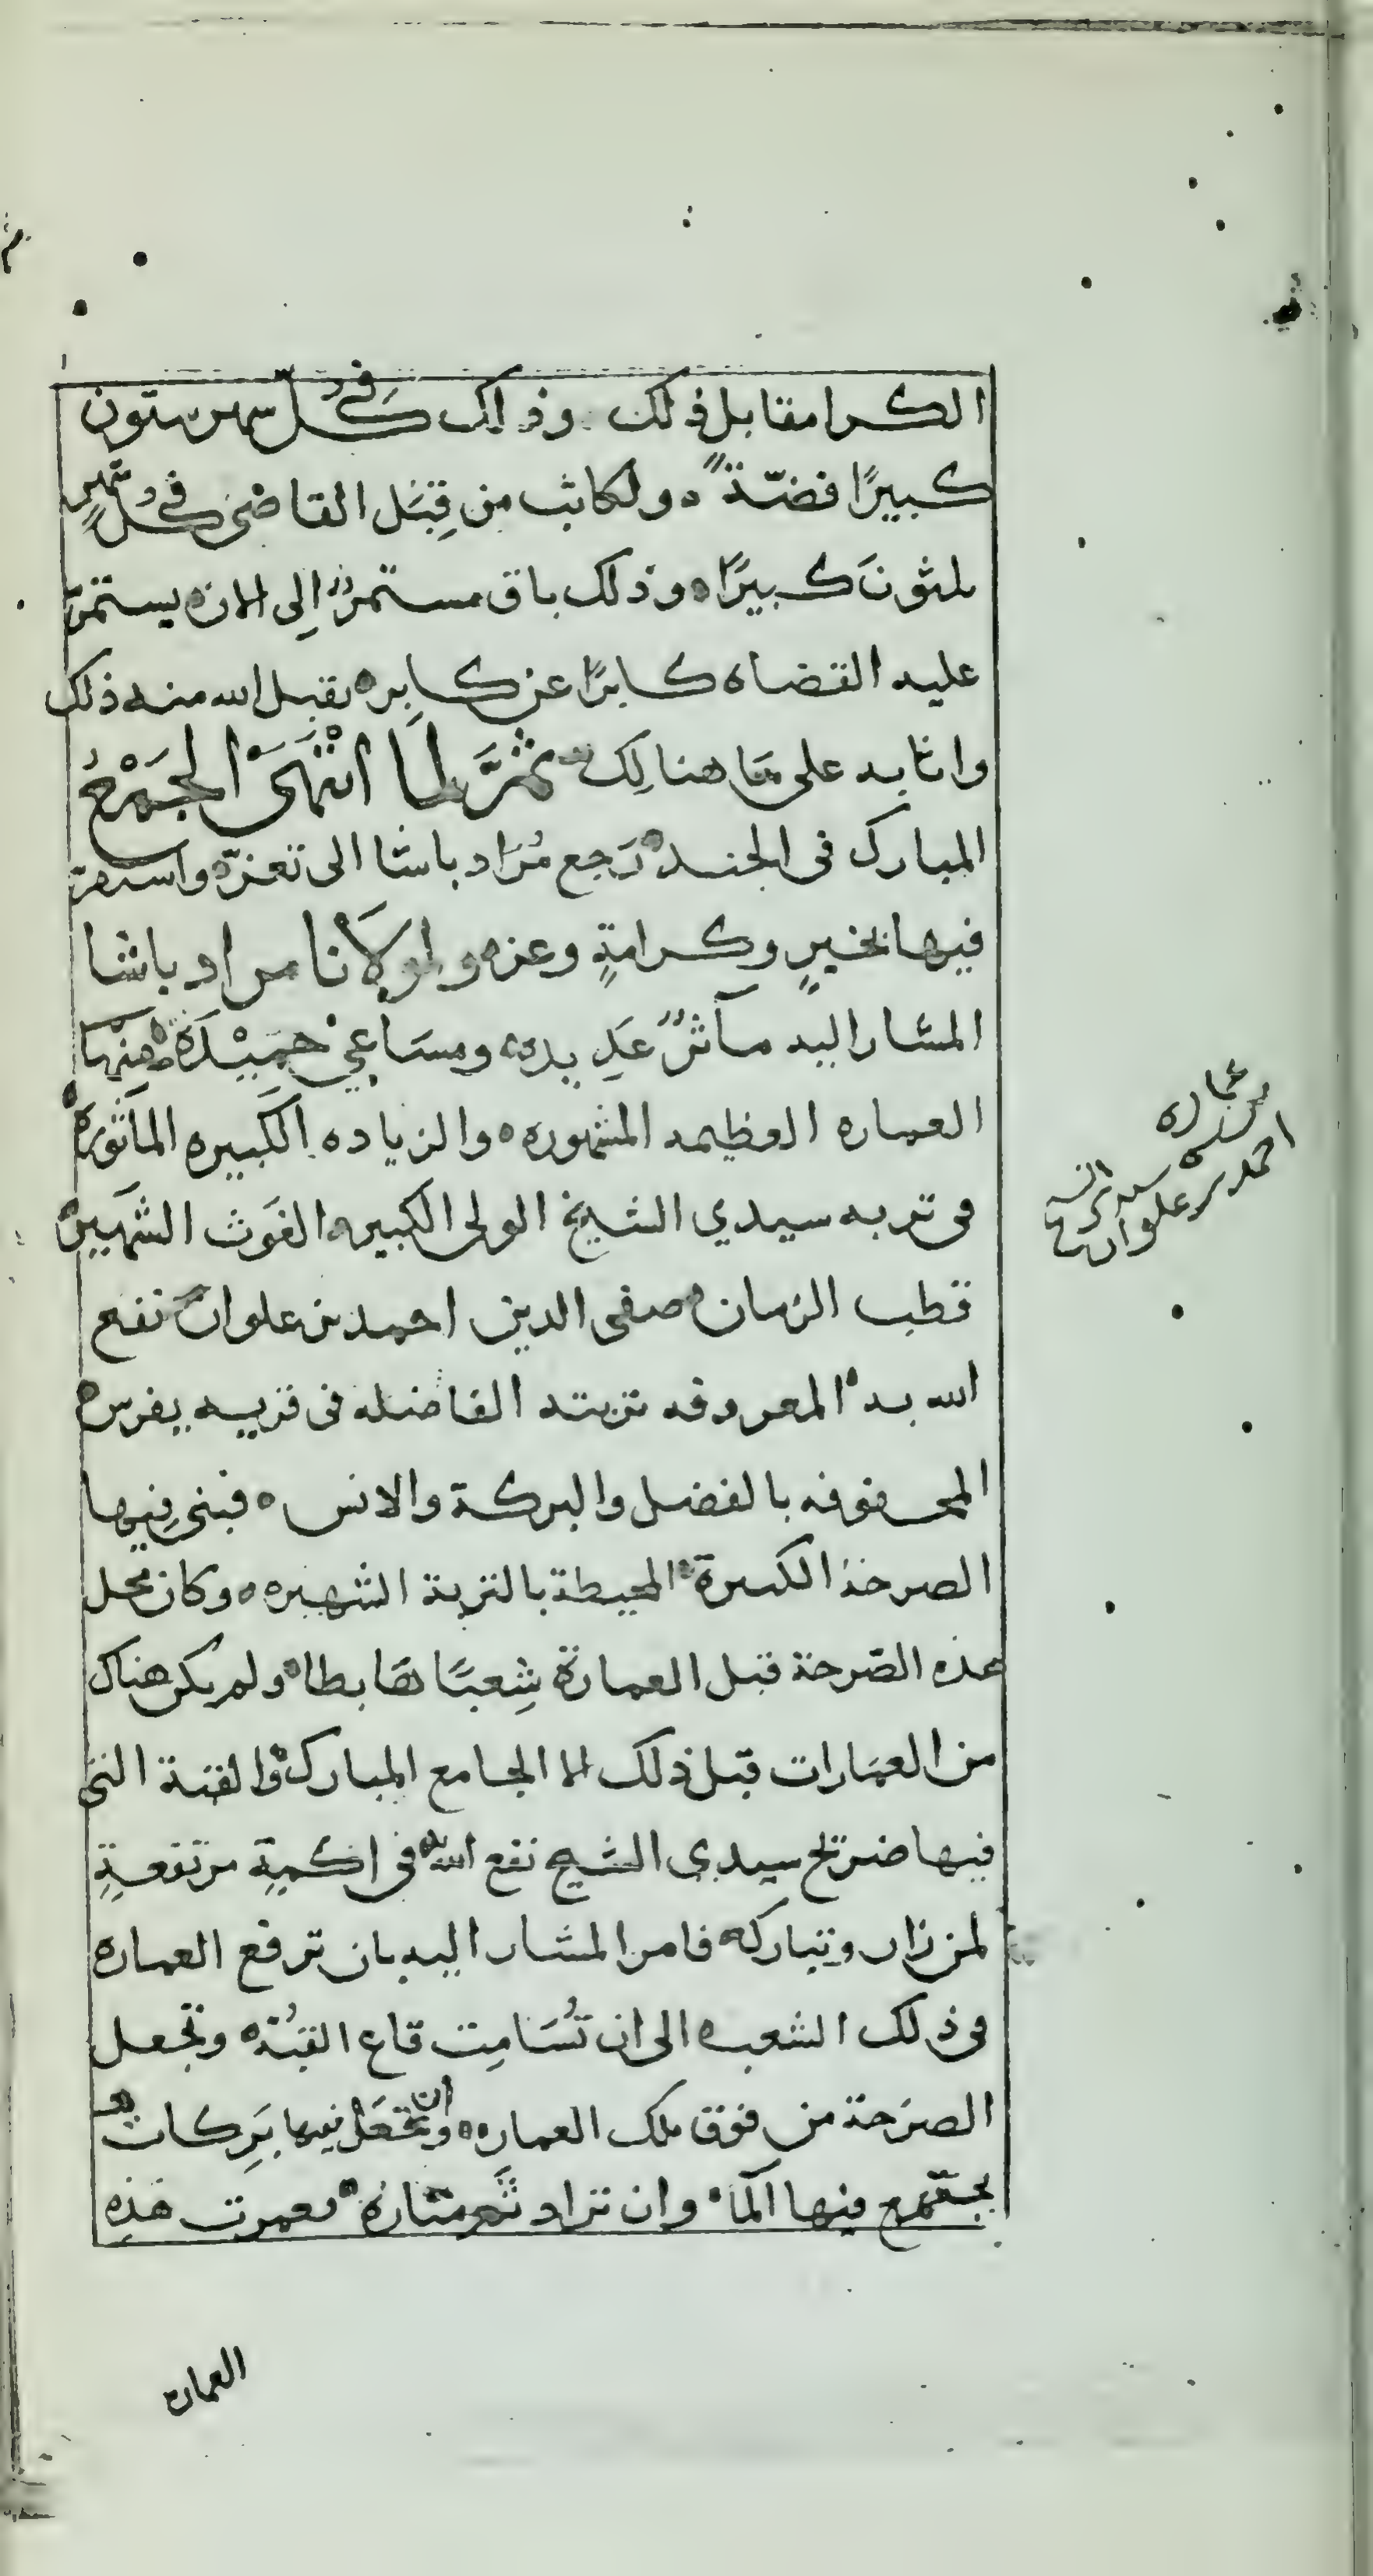 الكرا مقابل ذلك وذاك في كُلّ شهر ستون
كبيرًا فضّة ولكاتب من قِبَل القاضى في كُلّ شهرٍ
ثلثونَ كبيرًا وذلك باق مستمرٌ إلى الان يستمرّ
عليه القضاه كابرًا عن كابر تقبل الله منه ذلك
واثابه على ما هنالِك ثمَّ لما انْتَهَىَ الجَمْعُ
المبارك فى الجند رَجع مُرَاد باشا الى تعزّ واستمرّ
فيها بخيرٍ وكرامةٍ وعزه ولمولانا مراد باشا
المشار اليه مآثرٌ عَدِيده ومسَاعِي حَمِيْدَة مِنْهَا
العماره العظيمه المشهوره والزياده الكبيره المأثورة
فى تربه سيدي الشيخ الولى الكبير الغوث الشهير
قطب الزمان صفى الدين احمد بن علوان نفع
الله به المعروفه تربته الفاضله فى قريه يفرس
المحفوفه بالفضل والبركة والانس فبنى فِيها
الصرحة الكبيرة المحيطة بالتربة الشهيره وكان محل
هذه الصّرحة قبل العمارة شِعبًا هَابطا ولم يكن هناك
من العمَارات قبل ذلك الا الجامع المبارك والقبة التى
فيها ضريح سيدي الشيخ نفع الله به فى اكمةٍ مرتفعةٍ
لمن زار وتبارك فامر المشار اليه بان ترفع العماره
فى ذلك الشعب الى ان تُسَامِت قاع القبّه وتجعل
الصرَحة من فوق تلك العماره وان تجعَل فيها بَرِكات
يجتمع فيها المآ وان تزاد ثَم منارة فعمرت هَذِهِ
عماره
احمد بن علوان
العماره